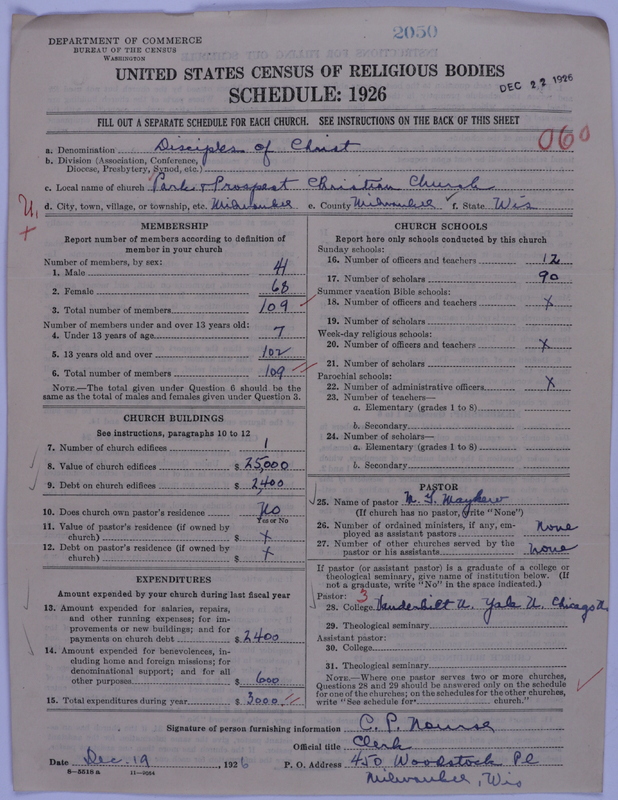 2050
DEPARTMENT OF COMMERCE
BUREAU OF THE CENSUS
WASHINGTON
UNITED STATES CENSUS OF RELIGIOUS BODIES
SCHEDULE: 1926
DEC 22 1926
FILL OUT A SEPARATE SCHEDULE FOR EACH CHURCH. SEE INSTRUCTIONS ON THE BACK OF THIS SHEET
060
a. Denomination Disciples of Christ
b. Division (Association, Conference, Diocese, Presbytery, Synod, etc.)
c. Local name of church Park & Prospect Christian Church
d. City, town, village, or township, etc. Milwaukee e. County Milwaukee f. State Wis
U.
MEMBERSHIP
Report number of members according to definition of member in your church
Number of members, by sex:
1. Male 41
2. Female 68
3. Total number of members 109
Number of members under and over 13 years old:
4. Under 13 years of age 7
5. 13 years old and over 102
6. Total number of members 109
NOTE.—The total given under Question 6 should be the same as the total of males and females given under Question 3.
CHURCH BUILDINGS
See instructions, paragraphs 10 to 12
7. Number of church edifices 1
8. Value of church edifices $ 25,000
9. Debt on church edifices $ 2,400
10. Does church own pastor's residence No
Yes or No
11. Value of pastor's residence (if owned by church) $ x
12. Debt on pastor's residence (if owned by church) $ x
EXPENDITURES
Amount expended by your church during last fiscal year
13. Amount expended for salaries, repairs, and other running expenses; for improvements or new buildings; and for payments on church debt $ 2400
14. Amount expended for benevolences, including home and foreign missions; for denominational support; and for all other purposes $ 600
15. Total expenditures during year $ 3000
CHURCH SCHOOLS
Report here only schools conducted by this church
Sunday schools:
16. Number of officers and teachers 12
17. Number of scholars 90
Summer vacation Bible schools:
18. Number of officers and teachers x
19. Number of scholars
Week-day religious schools:
20. Number of officers and teachers x
21. Number of scholars
Parochial schools:
22. Number of administrative officers x
23. Number of teachers—
a. Elementary (grades 1 to 8)
b. Secondary
24. Number of scholars—
a. Elementary (grades 1 to 8)
b. Secondary
PASTOR
25. Name of pastor Mayhew
(If church has no pastor, write "None")
26. Number of ordained ministers, if any, employed as assistant pastors None
27. Number of other churches served by the pastor or his assistants None
If pastor (or assistant pastor) is a graduate of a college or theological seminary, give name of institution below. (If not a graduate, write "No" in the space indicated.)
Pastor: 3
28. College Vanderbilt U. Yale U. Chicago U.
29. Theological seminary
Assistant pastor:
30. College
31. Theological seminary
NOTE.—Where one pastor serves two or more churches, Questions 28 and 29 should be answered only on the schedule for one of the churches; on the schedules for the other churches, write "See schedule for church."
Signature of person furnishing information C. P. Nourse
Official title Clerk
Date Dec. 19, 1926 P. O. Address 450 Woodstock Pl
Milwaukee, Wis
8—5518 a 11—9264